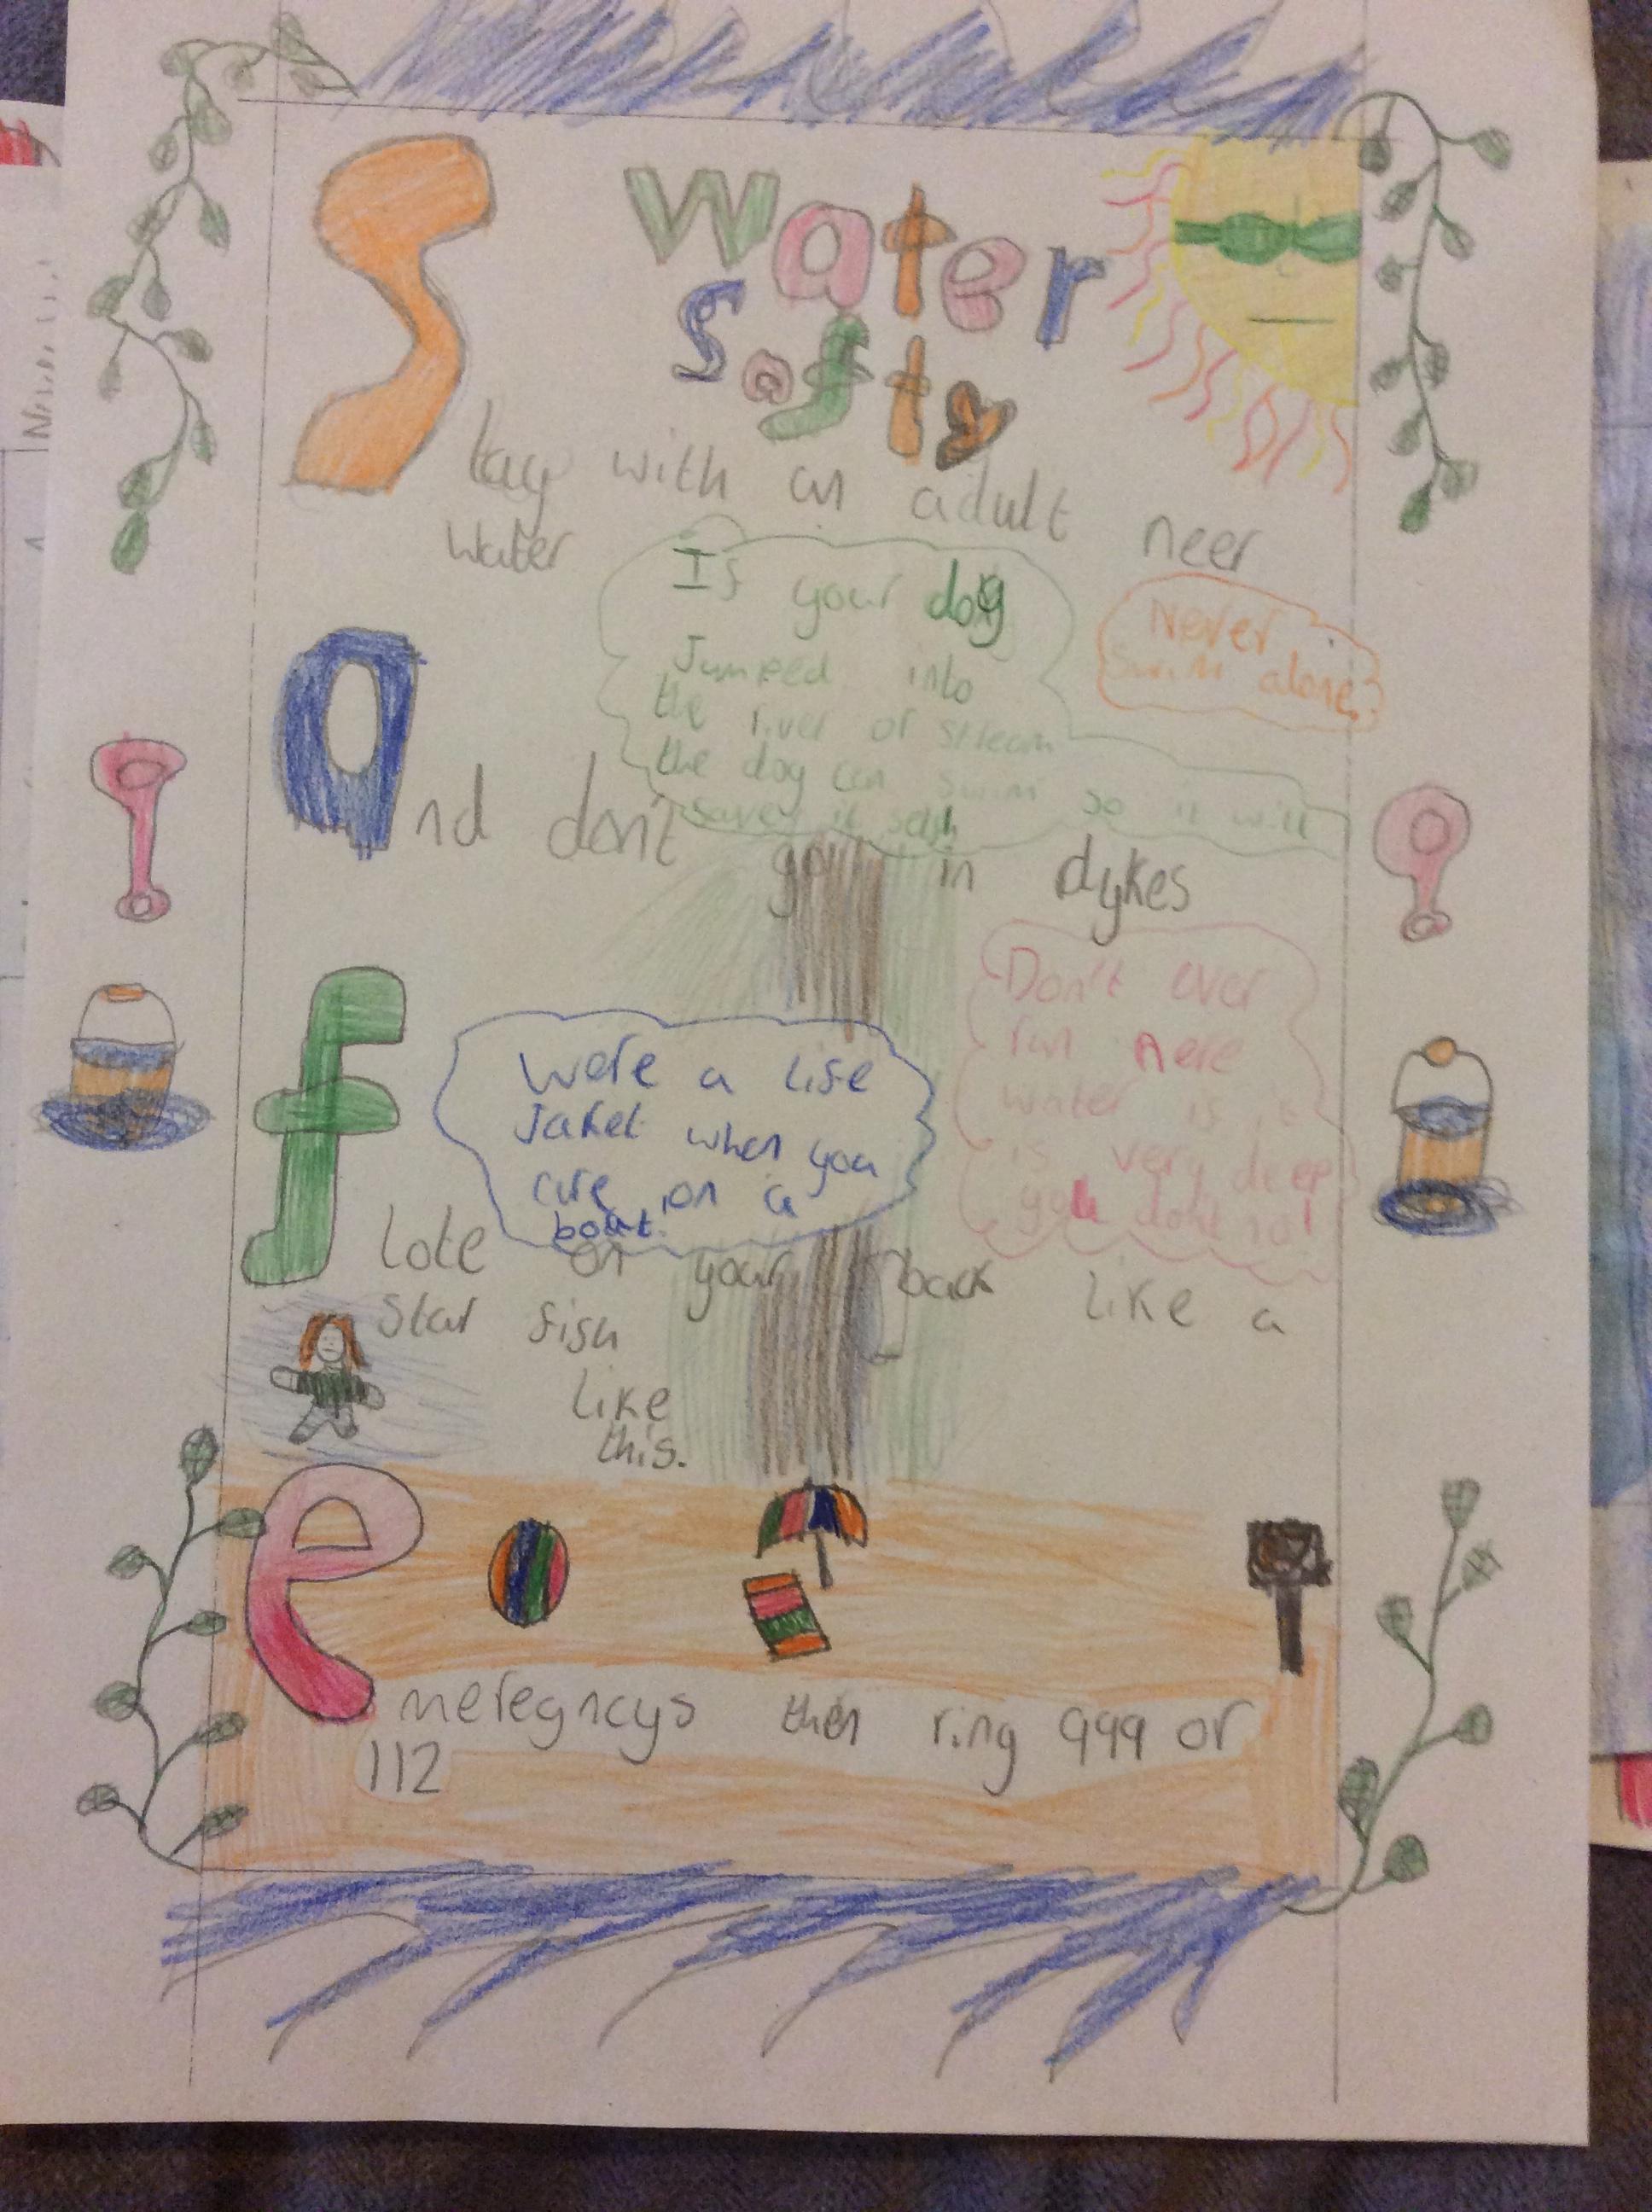 Water
Safty
Stay with an adult neer
water
If your dog
Jumped into
the river or stream
the dog can swim so it will
save it self
Never
Swim alone
and don't go in dykes
Don't ever
run nere
water is
is very deep
you dont no!
Were a life
Jaket when you
are on a
boat.
flote on your back like a
Star fish
like
this.
emeregncys then ring 999 or
112